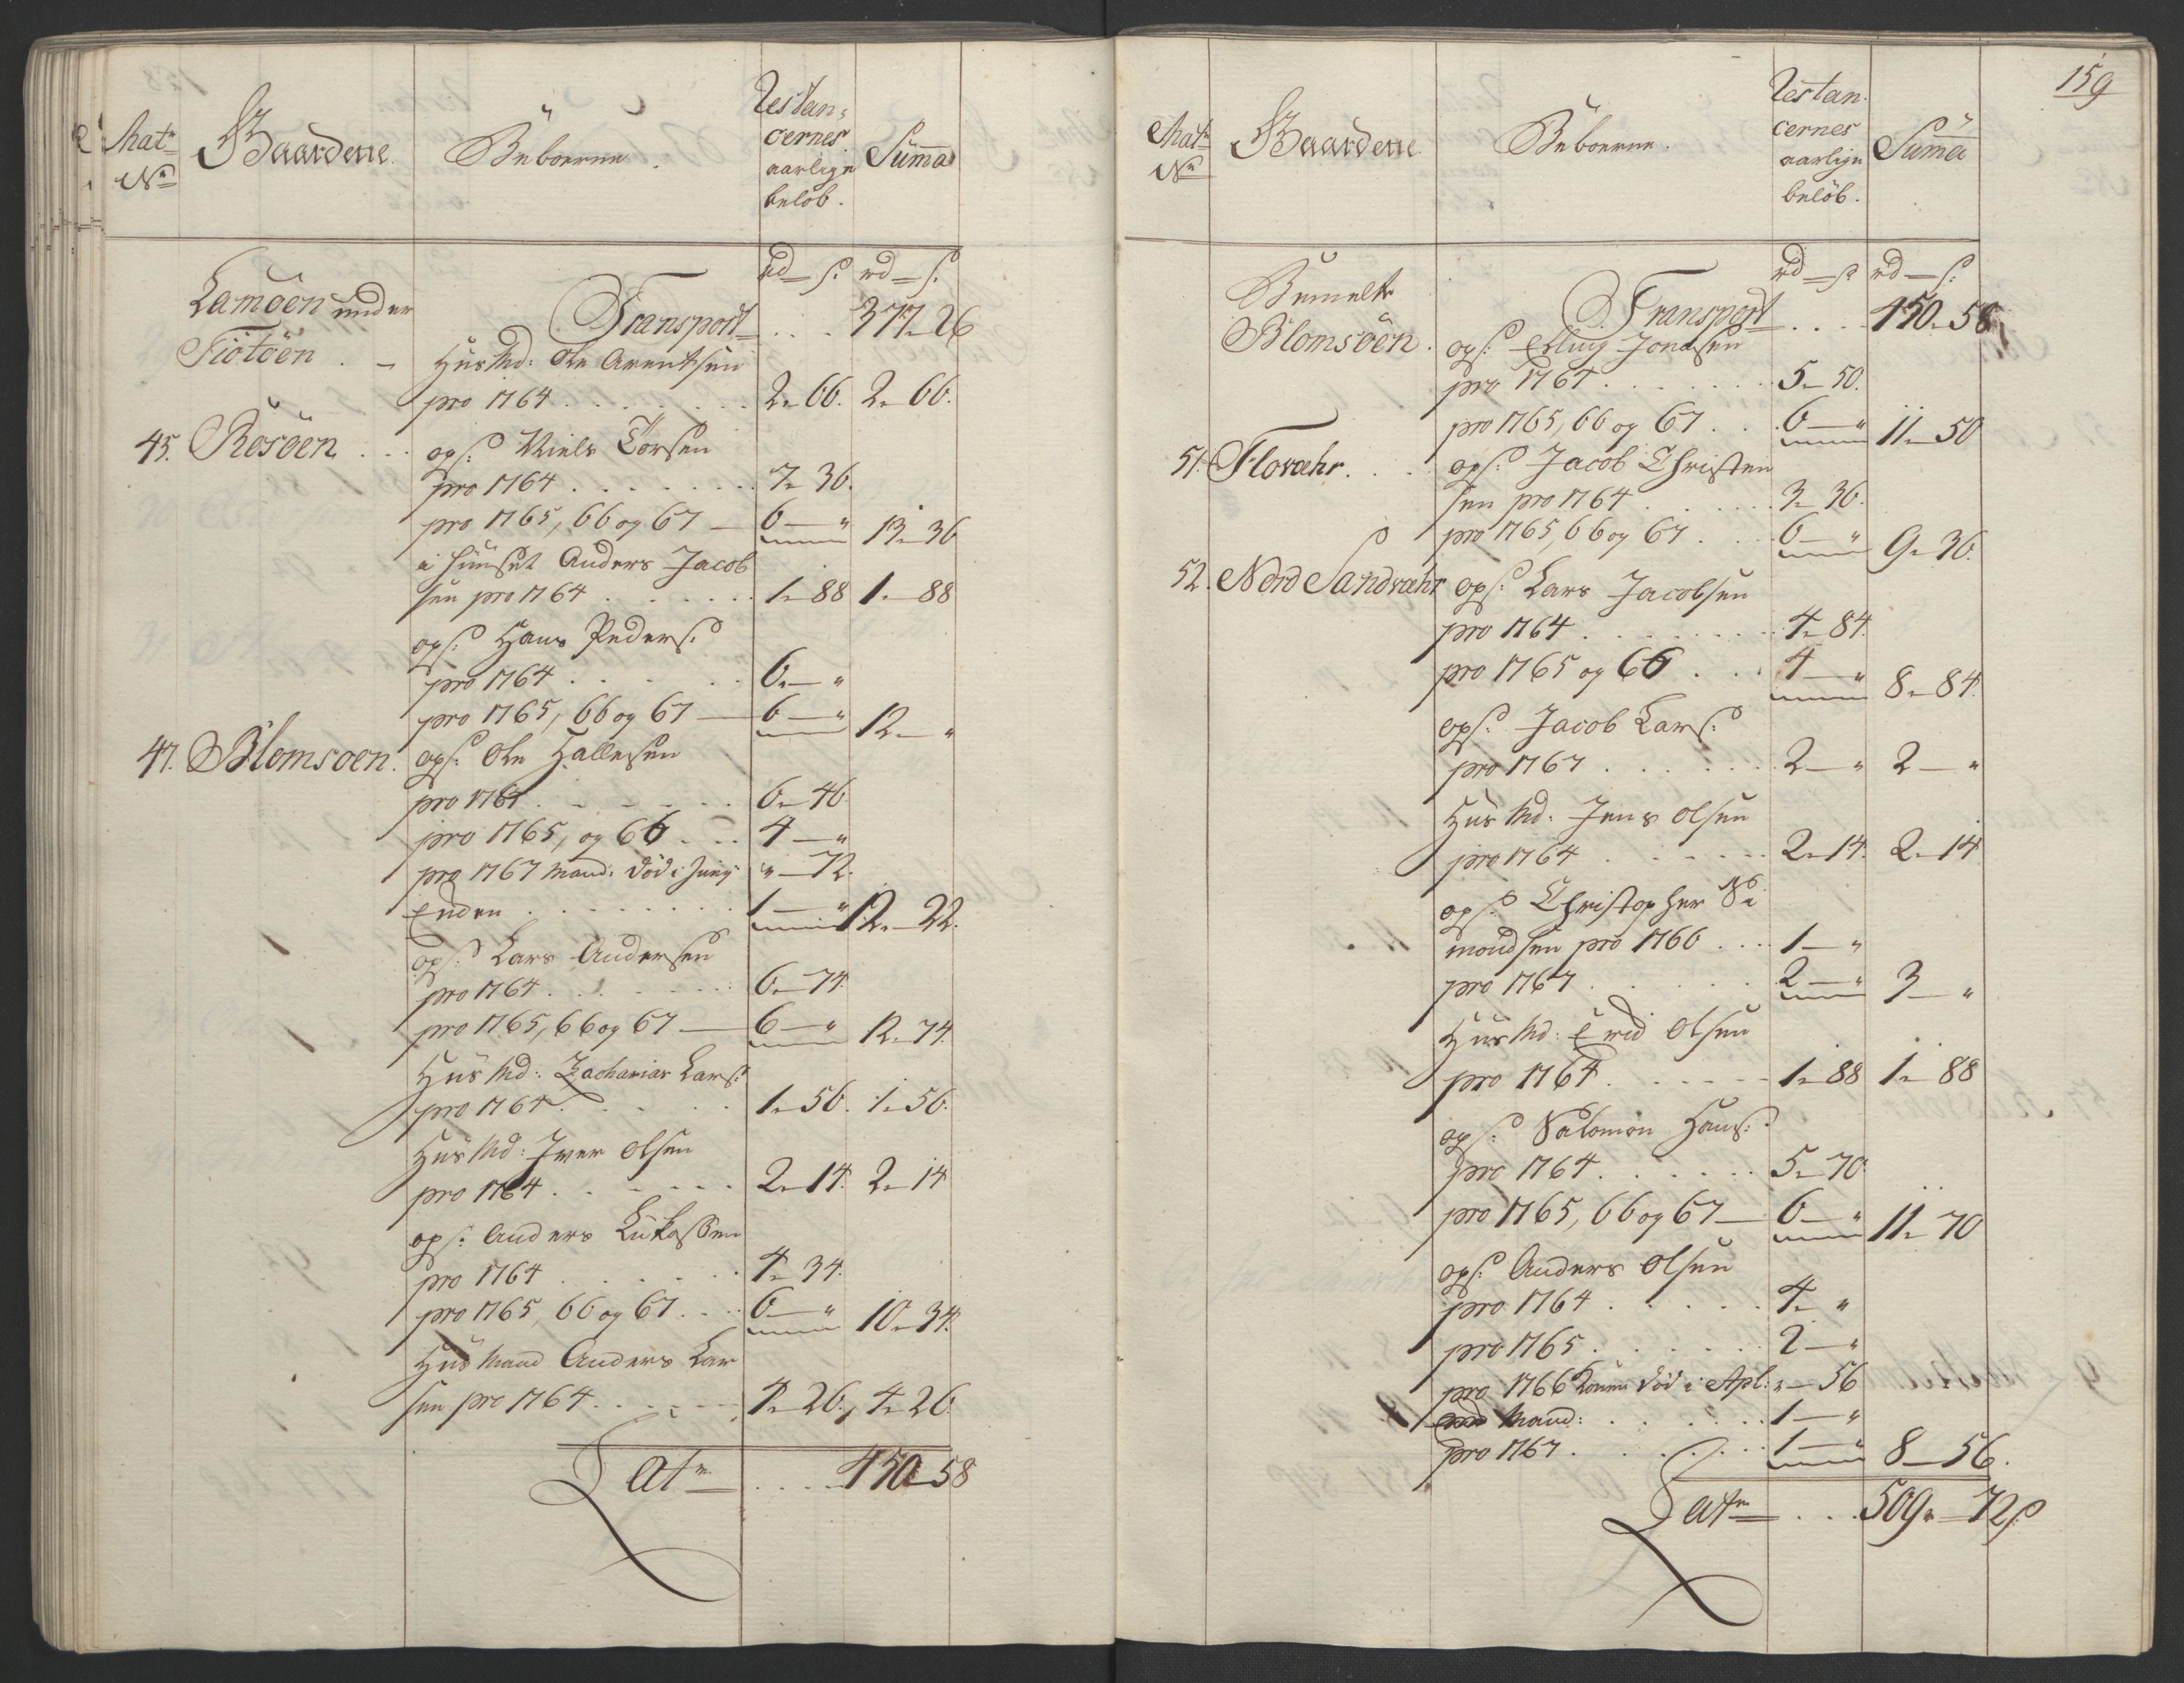 Mat:
No
Gaardene.
Beboerne.
Restan-
cernes
aarlige
beløb.
Summa
rd — s: rd — s:
Lamøen under
Transport . . . 377 - 26
Tiøtøen . - Huusmd: Ole Arentsen
pro 1764 . . . 2 - 66. 2 - 66.
45. Rosøen . . . ops: Niels Torsen
pro 1764 . . . 7 - 36.
pro 1765, 66 og 67 — 6 — " 13 - 36
i huuset Anders Jacob
sen pro 1764 . . . 1 - 88 1 - 88
ops: Hans Peders:
pro 1764 . . . 6 — "
pro 1765, 66 og 67 — 6 — " 12 — "
47. Blomsøen. ops: Ole Hallesen
pro 1764 . . . 6 - 46
pro 1765, og 66 . . . 4 — "
pro 1767 Mand: død i Junij " — 72.
Enken . . . 1 — " 12 - 22.
ops: Lars Andersen
pro 1764 . . . 6 - 74.
pro 1765, 66 og 67 — 6 — " 12 - 74.
Huusmd: Zacharias Lars:
pro 1764 . . . 1 - 56. 1 - 56.
Huusmd: Iver Olsen
pro 1764 . . . 2 - 14. 2 - 14
ops: Anders Lukassen
pro 1764 . . . 4 - 34.
pro 1765, 66 og 67 . . . 6 — " 10 - 34.
Huusmand Anders Lar
sen pro 1764 . . . 4 - 26. 4 - 26.
Lat: . . . 450 - 58
159
Mat:
No
Gaardene
Beboerne.
Restan-
cernes
aarlige
beløb.
Summa
rd — s: rd — s:
Bemelte
Transport . . . 450 - 58
Blomsøen. ops: Elling Jonassen
pro 1764 . . . 5 - 50.
pro 1765, 66 og 67 . . 6 — " 11 - 50
51. Flovæhr . . . ops: Jacob Christen
sen pro 1764 . . . 3 - 36.
pro 1765, 66 og 67 . . 6 — " 9 - 36.
52. Nord Sandvæhr ops: Lars Jacobsen
pro 1764 . . . 4 - 84.
pro 1765 og 66 . . . 4 — " 8 - 84.
ops: Jacob Lars:
pro 1767 . . . 2 — " 2 — "
Huusmd: Jens Olsen
pro 1764 . . . 2 - 14. 2 - 14
ops: Christopher Si
monsen pro 1766 . . . 1 — "
pro 1767 . . . 2 — " 3 — "
Huusmd: Erich Olsen
pro 1764 . . . 1 - 88 1 - 88
ops: Salomon Hans:
pro 1764 . . . 5 - 70.
pro 1765, 66 og 67 — 6 — " 11 - 70
ops: Anders Olsen
pro 1764 . . . 4 - "
pro 1765 . . . 2 — "
pro 1766 Konen død i Apl: " — 56
Mand: . . . 1 — "
pro 1767 . . . 1 — " 8 - 56.
Lat: . . . 509 - 72 s